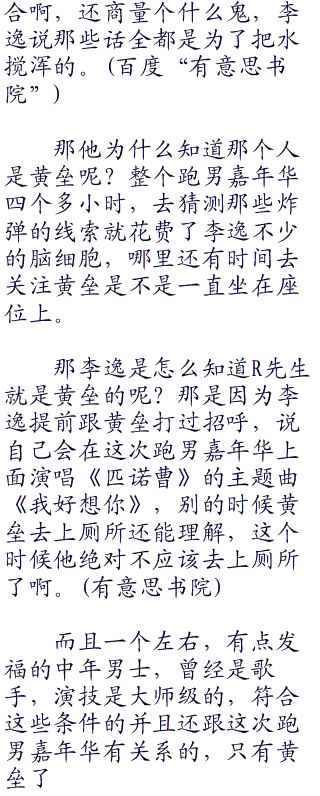 合啊，还商量个什么鬼，李
逸说那些话全都是为了把水
搅浑的。(百度“有意思书
院”)
那他为什么知道那个人
是黄垒呢？整个跑男嘉年华
四个多小时，去猜测那些炸
弹的线索就花费了李逸不少
的脑细胞，哪里还有时间去
关注黄垒是不是一直坐在座
位上。
那李逸是怎么知道R先生
就是黄垒的呢？那是因为李
逸提前跟黄垒打过招呼，说
自己会在这次跑男嘉年华上
面演唱《匹诺曹》的主题曲
《我好想你》，别的时候黄
垒去上厕所还能理解，这个
时候他绝对不应该去上厕所
了啊。(有意思书院)
而且一个左右，有点发
福的中年男士，曾经是歌
手，演技是大师级的，符合
这些条件的并且还跟这次跑
男嘉年华有关系的，只有黄
垒了